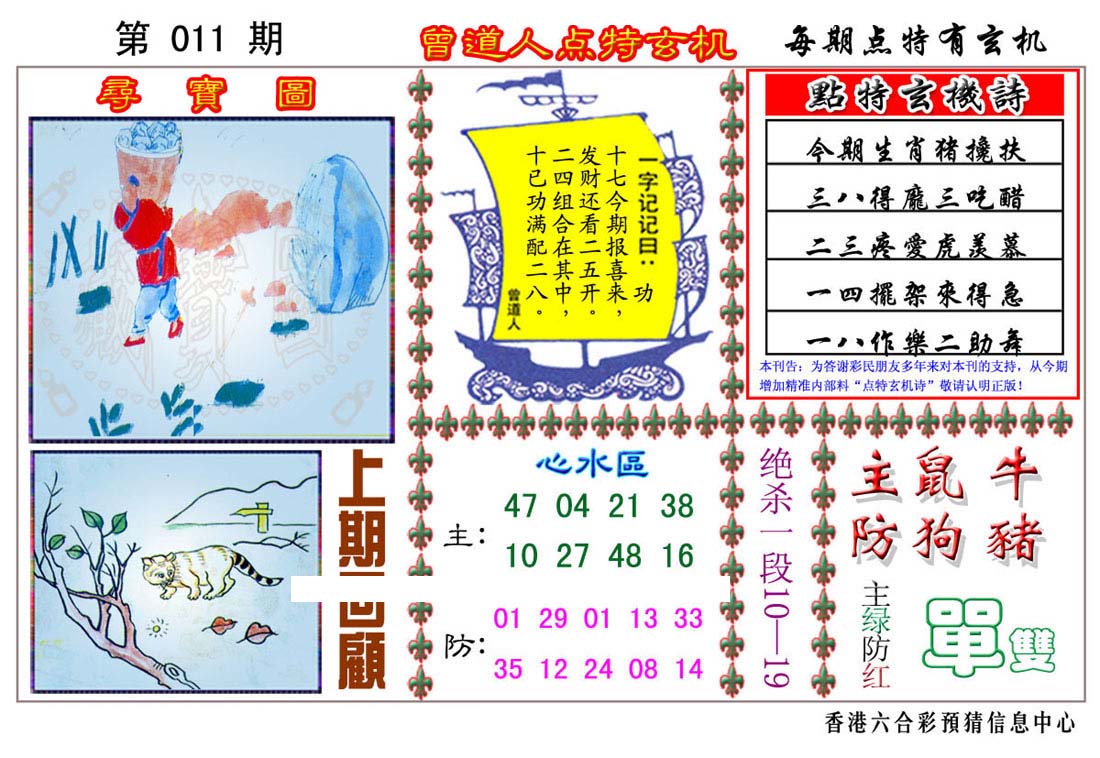 第 011 期
曾道人点特玄机
每期点特有玄机
尋寶圖
一字记记曰：功
十七今期报喜来，
发财还看二五开。
二四组合在其中，
十已功满配二八。
曾道人
點特玄機詩
今期生肖猪攙扶
三八得龐三吃醋
二三疼愛虎羨慕
一四擺架來得急
一八作樂二助舞
本刊告：为答谢彩民朋友多年来对本刊的支持，从今期
增加精准内部料“点特玄机诗”敬请认明正版！
上期回顧
心水區
主：
47 04 21 38
10 27 48 16
防：
01 29 01 13 33
35 12 24 08 14
绝杀一段10—19
主鼠牛
防狗豬
主绿防红
單雙
香港六合彩預猜信息中心